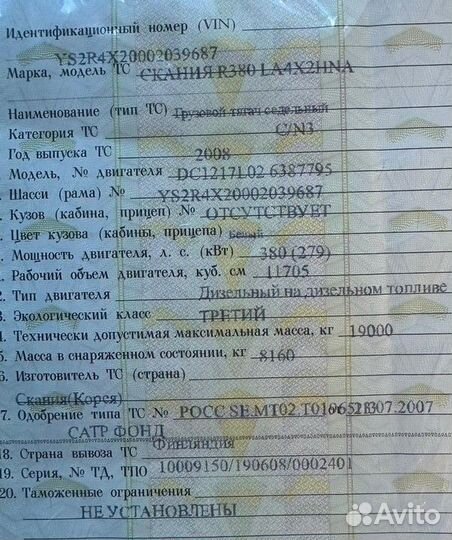 Идентификационный номер (VIN)
YS2R4X20002039687
Марка, модель ТС СКАНИЯ R380 LA4X2HNA
Наименование (тип ТС) Грузовой тягач седельный
Категория ТС C/N3
Год выпуска ТС 2008
Модель, № двигателя DC1217L02 6387795
Шасси (рама) № YS2R4X20002039687
Кузов (кабина, прицеп) № ОТСУТСТВУЕТ
Цвет кузова (кабины, прицепа) Белый
Мощность двигателя, л. с. (кВт) 380 (279)
Рабочий объем двигателя, куб. см 11705
2. Тип двигателя Дизельный на дизельном топливе
3. Экологический класс ТРЕТИЙ
4. Технически допустимая максимальная масса, кг 19000
5. Масса в снаряженном состоянии, кг 8160
6. Изготовитель ТС (страна)
Скания(Корея)
7. Одобрение типа ТС № РОСС SE.MT02.
07.2007
САТР ФОНД
18. Страна вывоза ТС Финляндия
19. Серия, № ТД, ТПО 10009150/190608/0002401
20. Таможенные ограничения
НЕ УСТАНОВЛЕНЫ
Avito